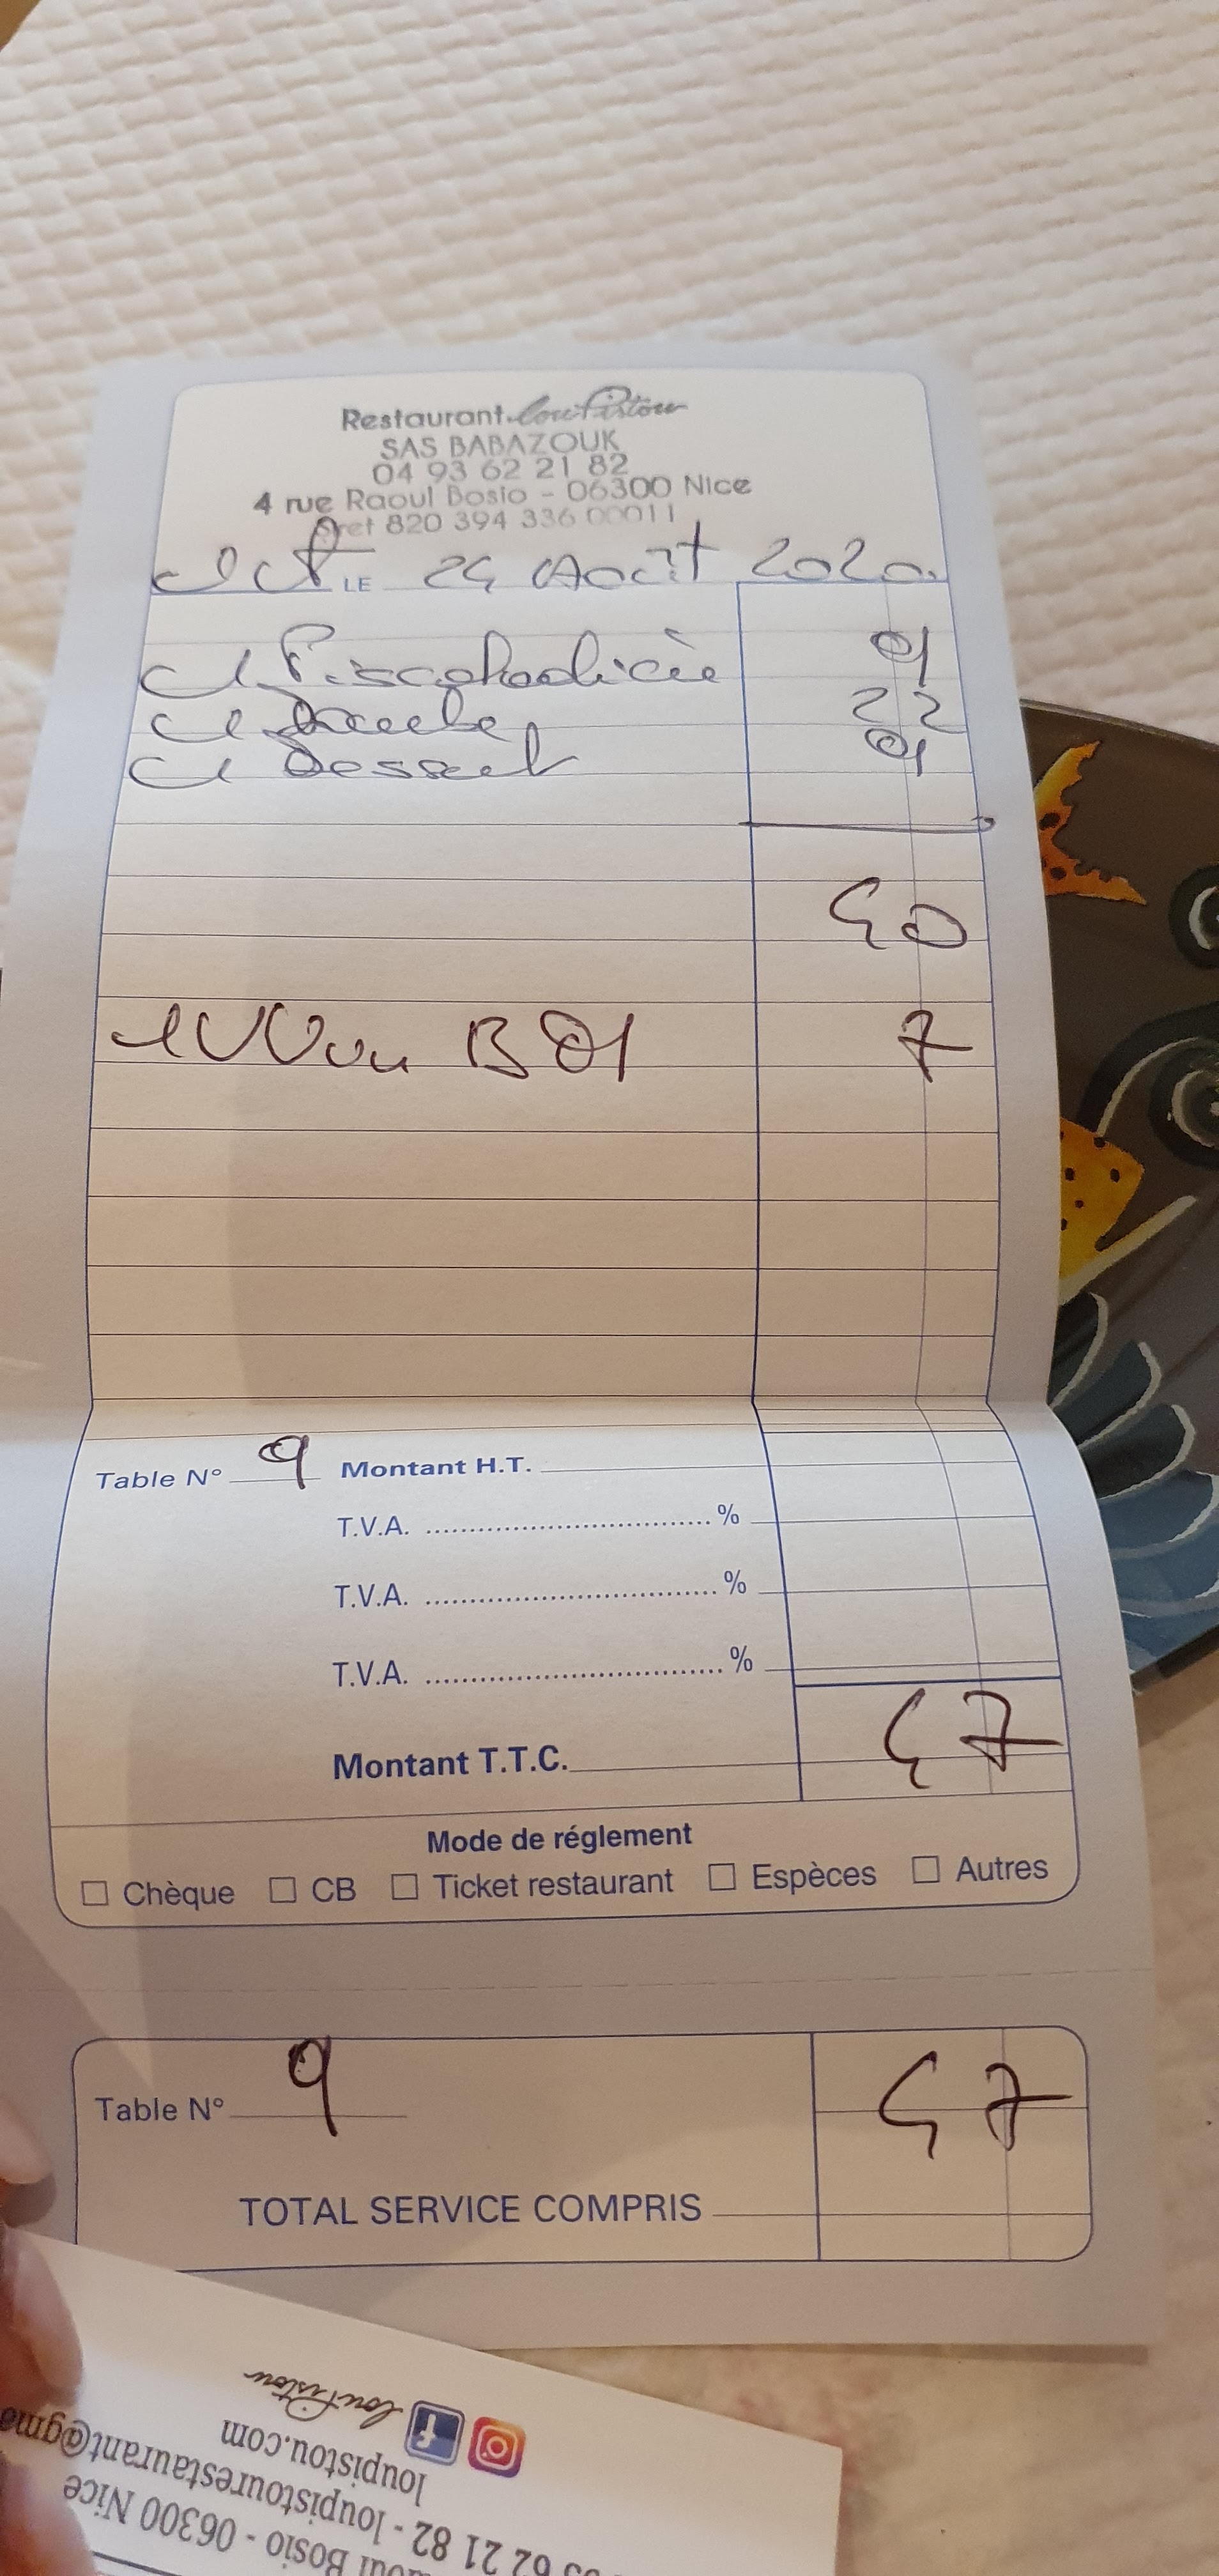 Restaurant Lou Pistou
SAS BABAZOUK
04 93 62 21 82
4 rue Raoul Bosio - 06300 Nice
Siret 820 394 336 00011
1 Ct LE 24 Août 2020
1 Pissaladière 9
1 Daube 22
1 Dessert 9
40
1 V Vin B 7
Table N° 9 Montant H.T.
T.V.A. %
T.V.A. %
T.V.A. %
Montant T.T.C. 47
Mode de réglement
Chèque CB Ticket restaurant Espèces Autres
Table N° 9 47
TOTAL SERVICE COMPRIS
Lou Pistou
loupistou.com
62 21 82 - loupistourestaurant@gma
Bosio - 06300 Nice